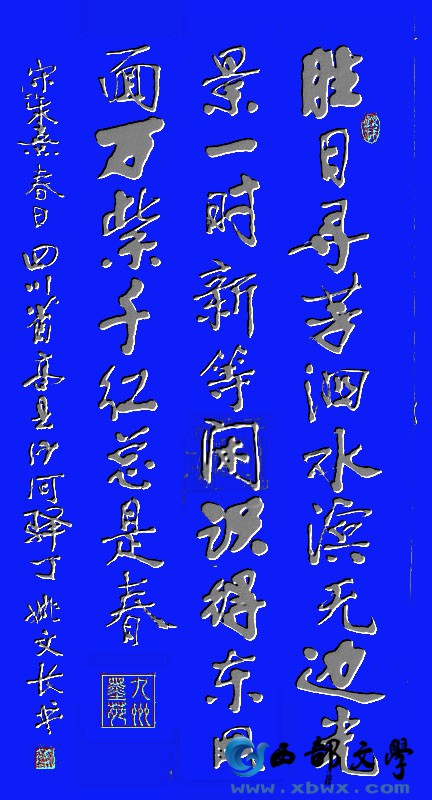 胜日寻芳泗水滨无边光
景一时新等闲识得东风
面万紫千红总是春
宋朱熹春日四川省高县沙河驿丁姚文长书
九州墨苑
西部文學
www.xbwx.com